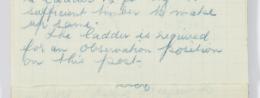 sufficient timber to make
up same.
The ladder is required
for an observation position
on this post.